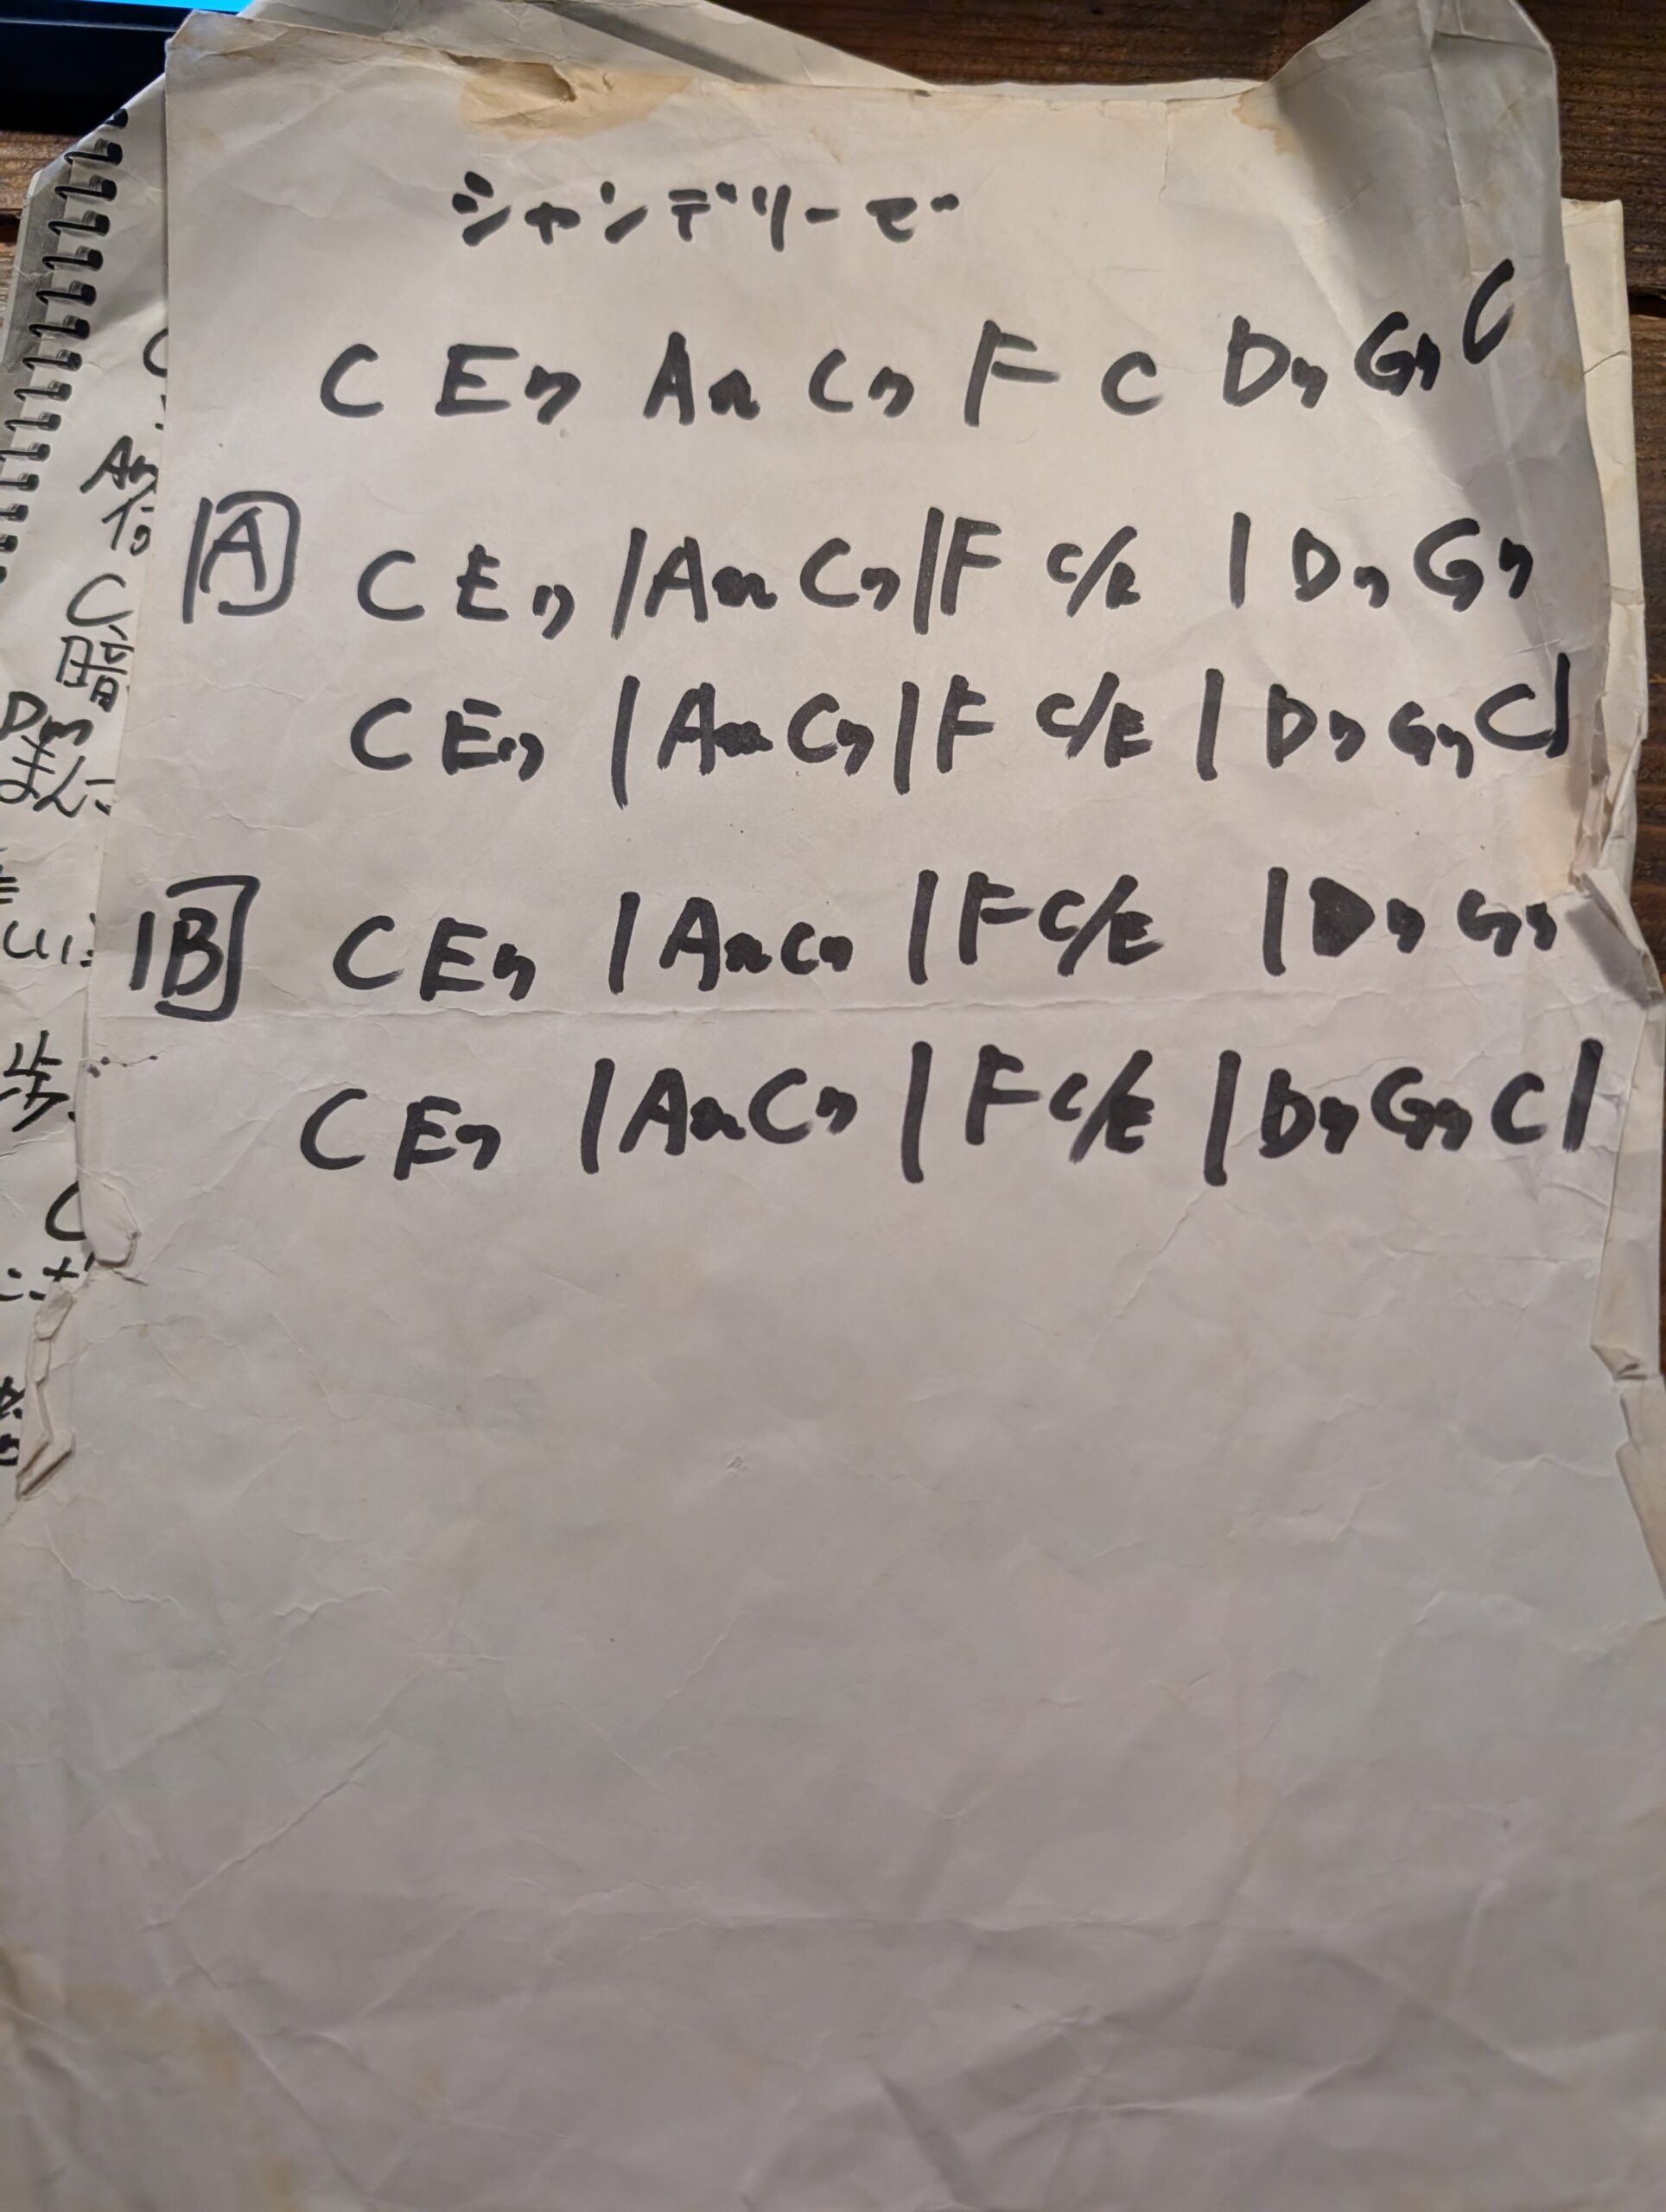 シャンデリーゼ
C E7 Am C7 F C D7 G7 C
A C E7 | Am C7 | F C/E | D7 G7
C E7 | Am C7 | F C/E | D7 G7 C |
B C E7 | Am C7 | F C/E | D7 G7
C E7 | Am C7 | F C/E | D7 G7 C |
C
Am
C
暗
Dm
まんこ
歩
C